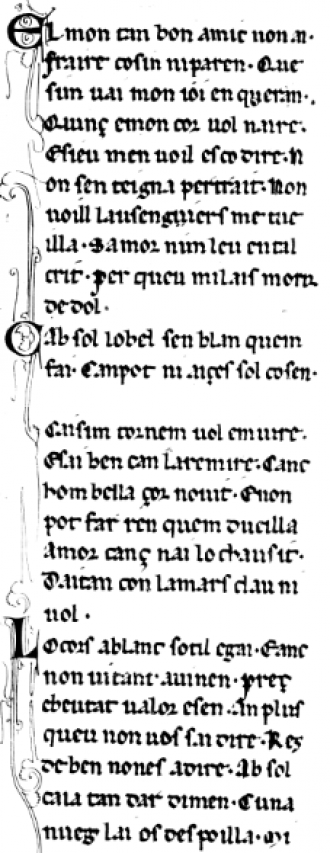 El mon tan bon amic non ai·
fraire cosin ni paren· Que
sim uai mon ioi en queran·
Quinç emon cor uol naire·
Esieu men uoil escodire· N
on sen teigna pertrait· Non
uoill lausengiers me tue
illa· Samor nim leu en tal
crit· per queu mi lais moru
de dol·
Cab sol lo bel sen blan quem
fai· Can pot ni aiçes sol cosen·
uol emuire·
Esai ben can laremire· Canc
hom bella çor nouit· Enon
pot far ren quem dueilla
amor tanç nai lo chausit·
Daitan con lamars clau ni
uol·
Lo cors ablanc sotil egai· Eanc
non uitant auinen· preç
ebeutat ualor esen· An plus
queu non uos sai dire· Res
de ben nones adire· Ab sol
caia tan dar dimen· Cuna
nueg lai os despoilla· Mi